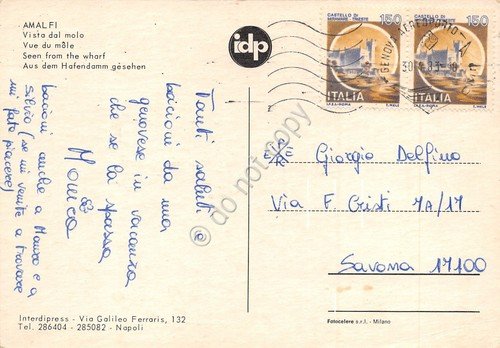 AMALFI
Vista dal molo
Vue du môle
Seen from the wharf
Aus dem Hafendamm gesehen
idp
CASTELLO DI
MIRAMARE - TRIESTE
150
ITALIA
I.P.Z.S.-ROMA
E. VANGELLI
CASTELLO DI
MIRAMARE - TRIESTE
150
ITALIA
I.P.Z.S.-ROMA
GENOVA AEROPORTO
Tanti saluti e
bacioni da una
genovese in vacanza
che se la spassa
Monica
bacioni anche a Mauro e a
Silvio (se mi venite a trovare
mi fate piacere)
Giorgio Delfino
Via F. Cristi 7A/17
Savona 17100
Interdipress - Via Galileo Ferraris, 132
Tel. 286404 - 285082 - Napoli
Fotocelere s.r.l. - Milano
do not copy